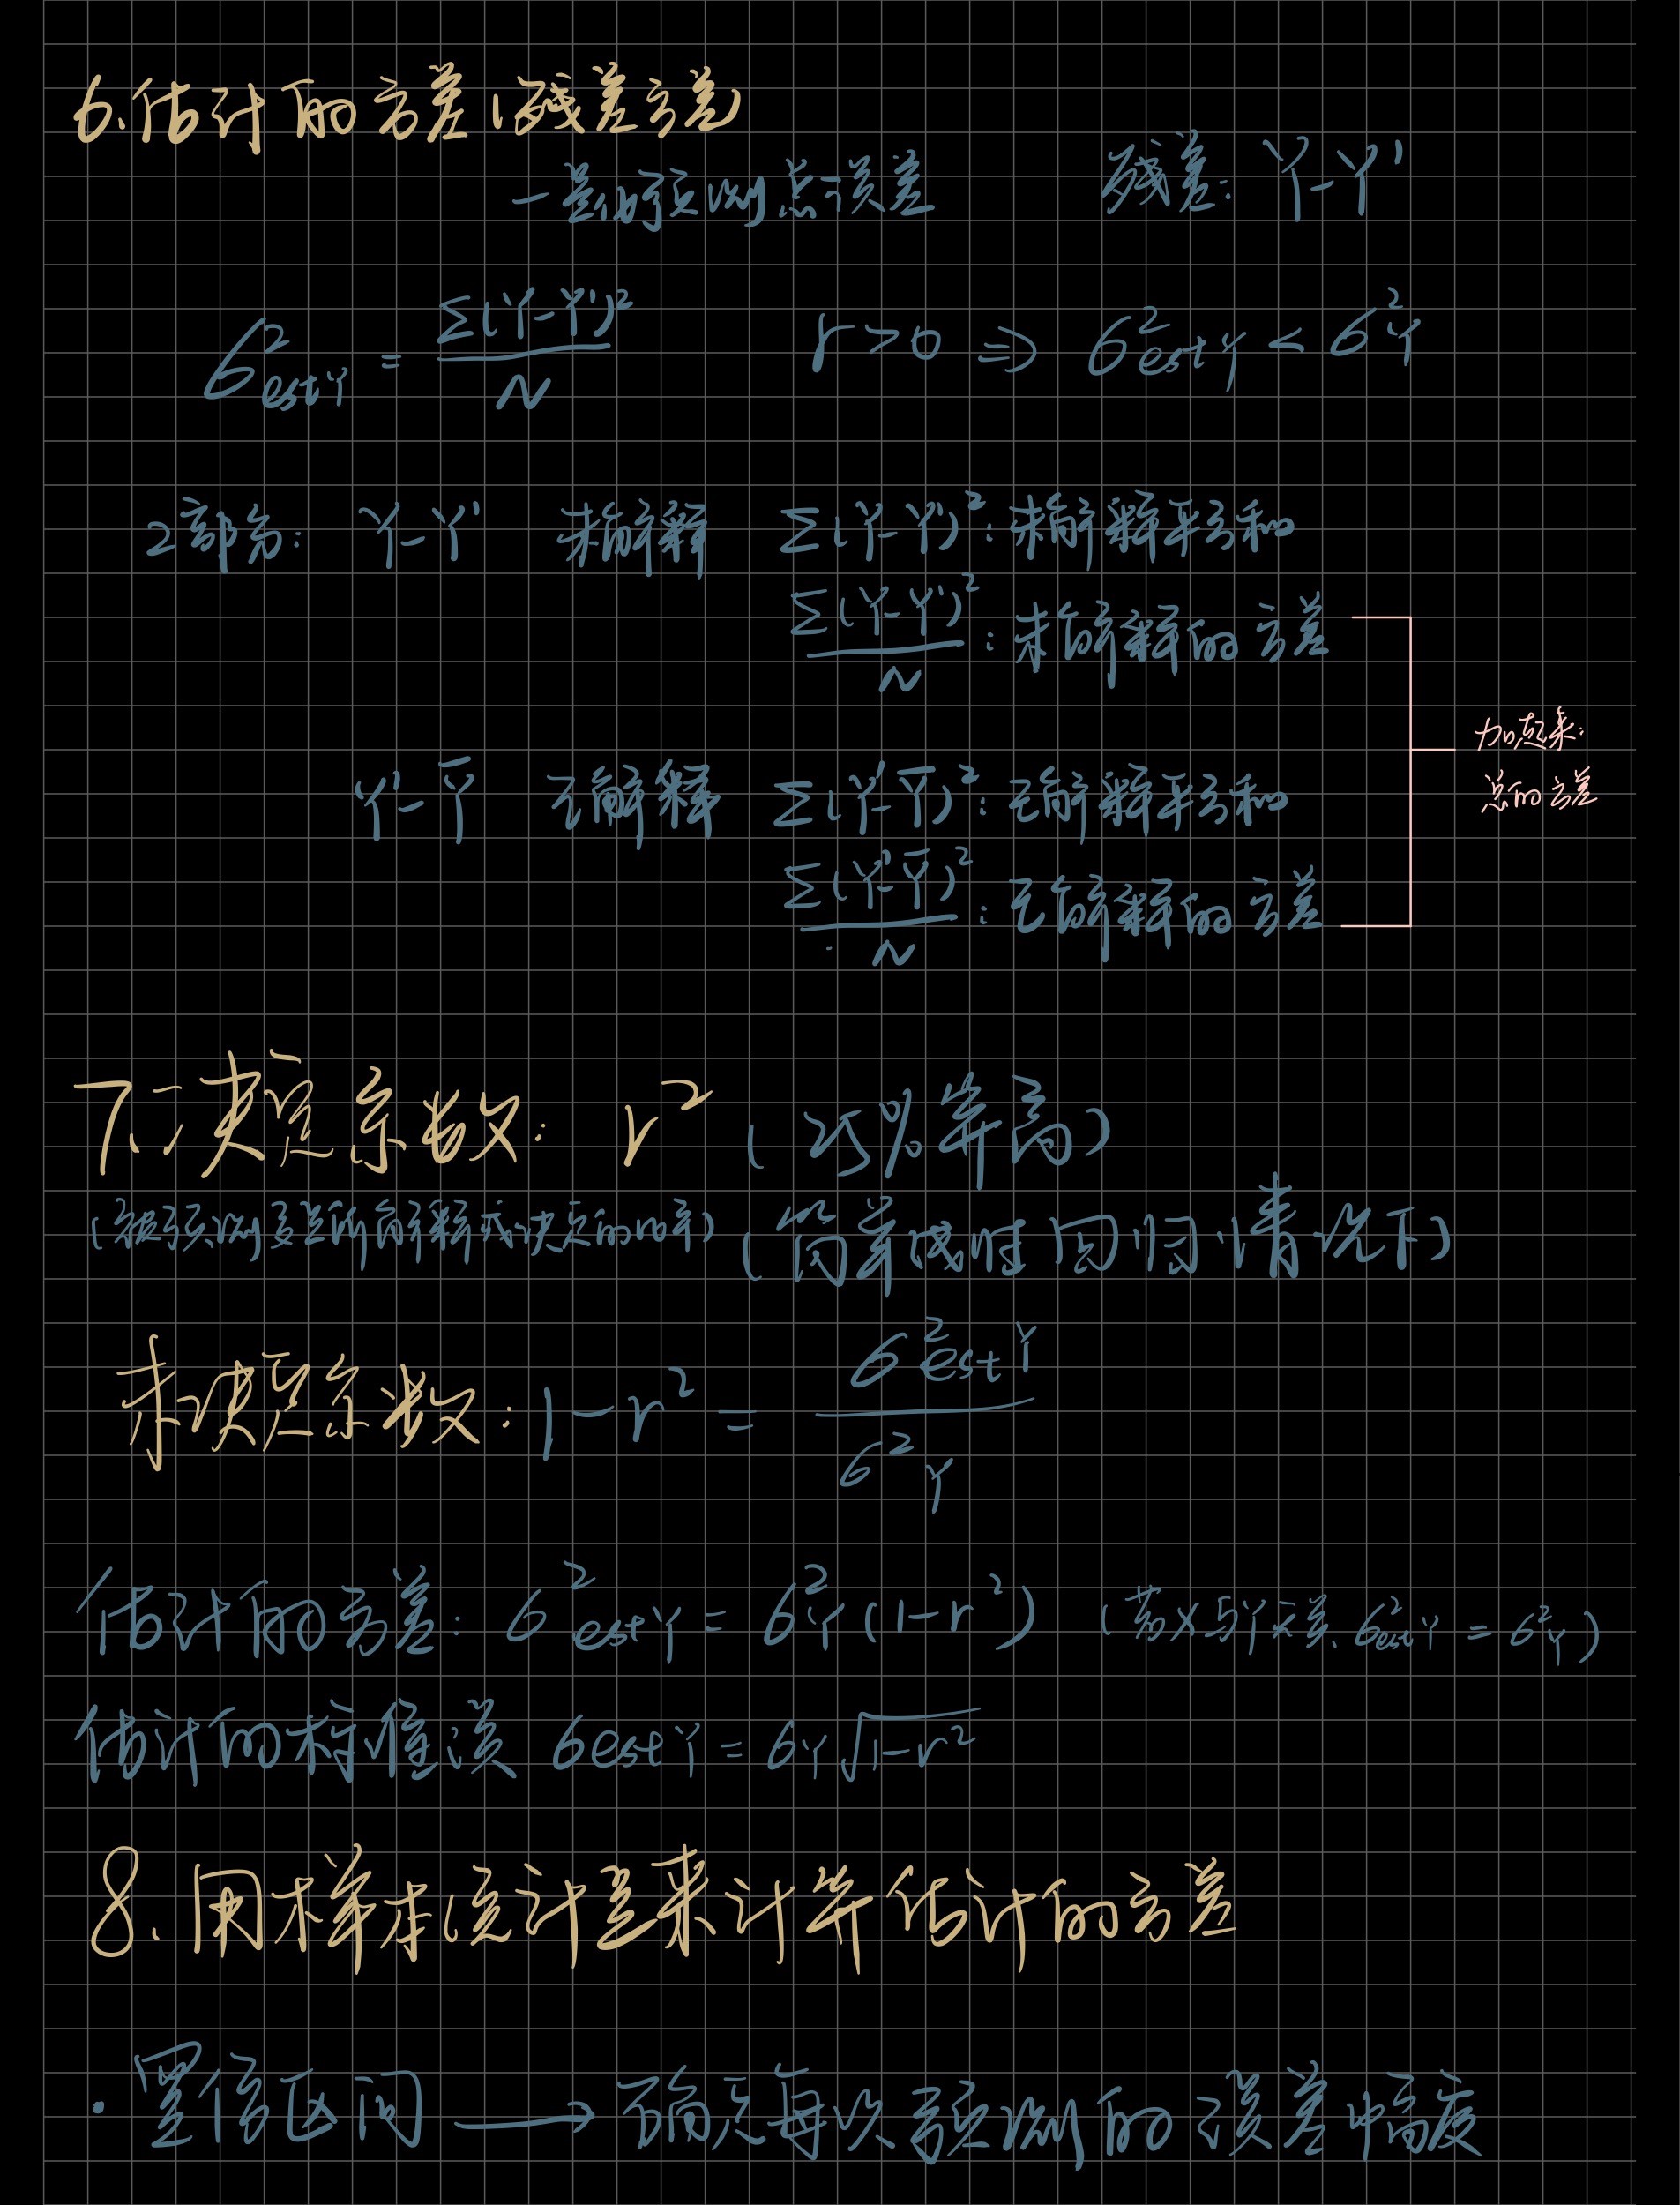 6.估计的方差(残差方差)
—量化预测点误差 残差: Y-Y'
σ²estY = Σ(Y-Y')²/N r>0 ⇒ σ²estY < σ²Y
2部分: Y-Y' 未解释 Σ(Y-Y')²: 未解释平方和
Σ(Y-Y')²/N : 未解释的方差
加起来:
总的方差
Y'-Ȳ 已解释 Σ(Y'-Ȳ)²: 已解释平方和
Σ(Y'-Ȳ)²/N : 已解释的方差
7.决定系数: r² (25%算高)
(被预测变量所解释或决定的比率) (简单线性回归情况下)
未决定系数: 1-r² = σ²estY/σ²Y
估计的方差: σ²estY = σ²Y(1-r²) (若X与Y无关, σ²estY = σ²Y)
估计的标准误 σestY = σY√1-r²
8.用样本统计量来计算估计的方差
·置信区间 → 确定每次预测的误差幅度